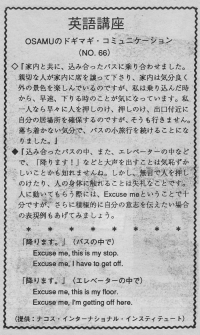 英語講座
OSAMUのドギマギ・コミュニケーション
(NO. 66)
◇『家内と共に、込み合ったバスに乗り合わせました。
親切な人が家内に席を譲って下さり、家内は気分良く
外の景色を楽しんでいるのですが、私は乗り込んだ時
から、早速、下りる時のことが気になっています。私
一人なら早々に人を押しのけ、押しのけ、出口付近に
自分の居場所を確保するのですが、そうも行きません。
落ち着かない気分で、バスの小旅行を続けることにな
りました。』
◆『込み合ったバスの中、また、エレベーターの中など
で、「降ります！」などと大声を出すことは気恥ずか
しいことかも知れませんね。しかし、無言で人を押し
のけたり、人の身体に触れることは失礼なことです。
人に動いてもらう際には、Excuse meということで十
分ですが、さらに積極的に自分の意志を伝えたい場合
の表現例もあげてみましょう。
＊ ＊ ＊ ＊ ＊ ＊ ＊
『降ります。』（バスの中で）
Excuse me, this is my stop.
Excuse me, I have to get off.
『降ります。』（エレベーターの中で）
Excuse me, this is my floor.
Excuse me, I'm getting off here.
（提供：ナコス・インターナショナル・インスティテュート）